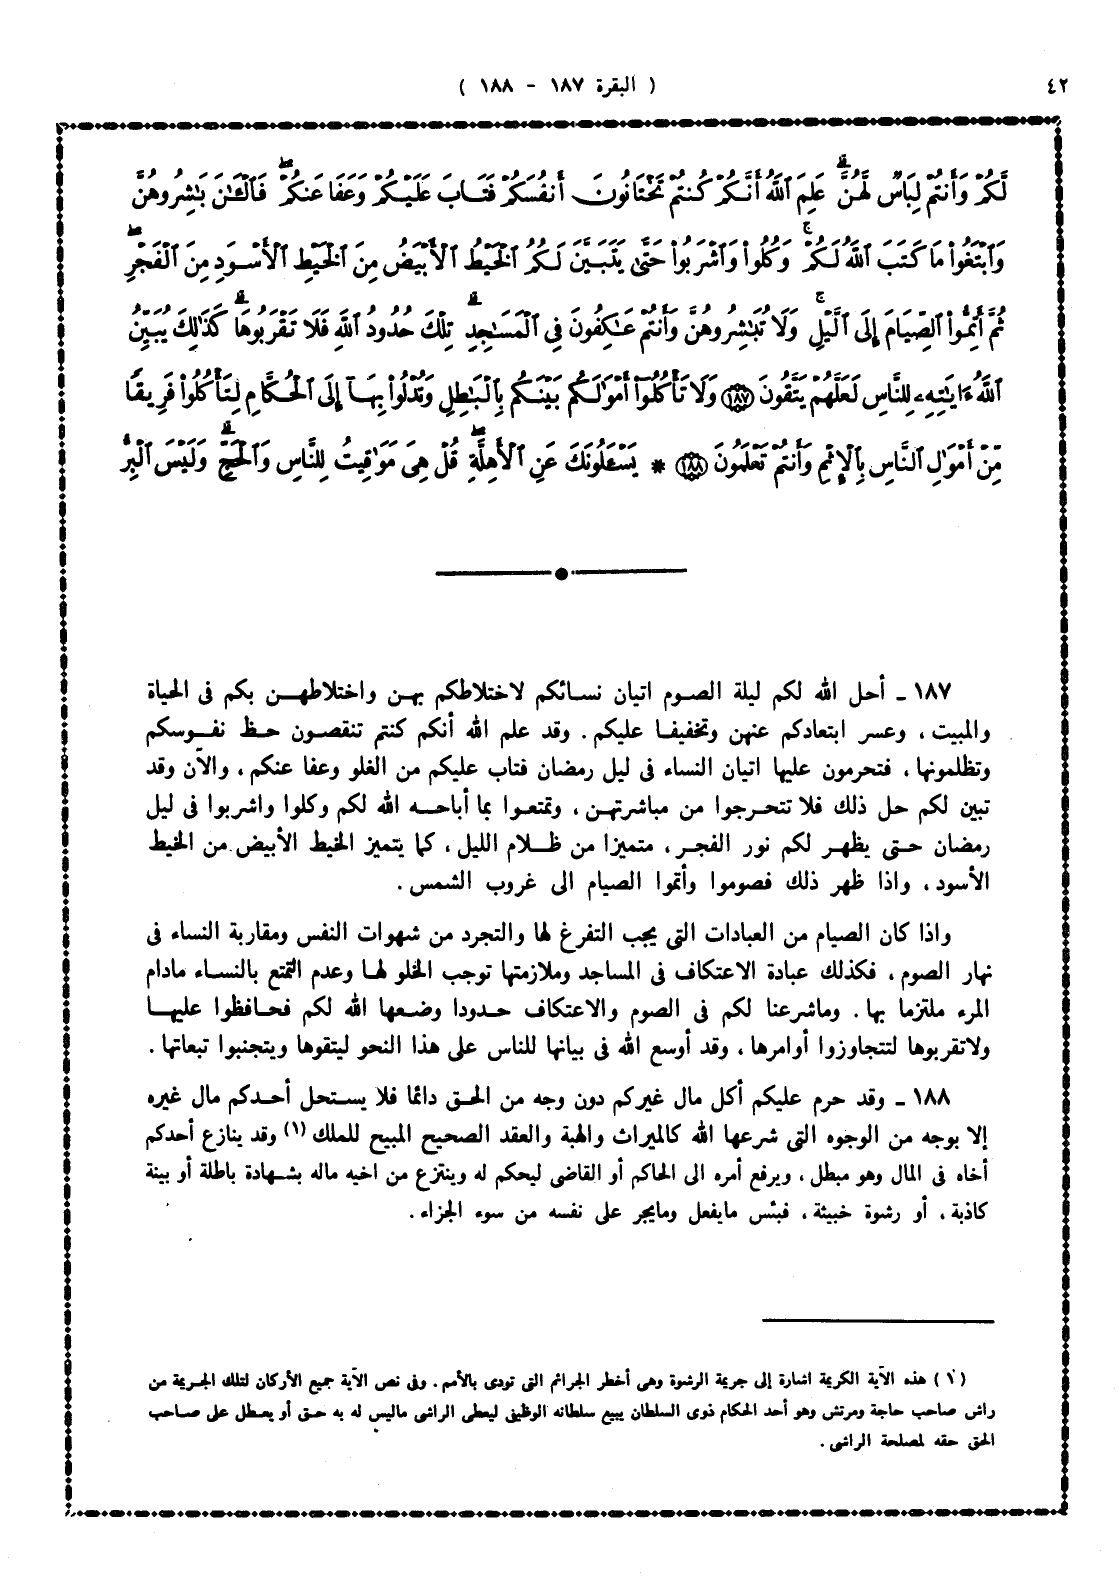 ٤٢
( البقرة ١٨٧ - ١٨٨ )
لَّكُمْ وَأَنتُمْ لِبَاسٌ لَّهُنَّ ۗ عَلِمَ ٱللَّهُ أَنَّكُمْ كُنتُمْ تَخْتَانُونَ أَنفُسَكُمْ فَتَابَ عَلَيْكُمْ وَعَفَا عَنكُمْ ۖ فَٱلْـَٰٔنَ بَـٰشِرُوهُنَّ
وَٱبْتَغُوا۟ مَا كَتَبَ ٱللَّهُ لَكُمْ ۚ وَكُلُوا۟ وَٱشْرَبُوا۟ حَتَّىٰ يَتَبَيَّنَ لَكُمُ ٱلْخَيْطُ ٱلْأَبْيَضُ مِنَ ٱلْخَيْطِ ٱلْأَسْوَدِ مِنَ ٱلْفَجْرِ ۖ
ثُمَّ أَتِمُّوا۟ ٱلصِّيَامَ إِلَى ٱلَّيْلِ ۚ وَلَا تُبَـٰشِرُوهُنَّ وَأَنتُمْ عَـٰكِفُونَ فِى ٱلْمَسَـٰجِدِ ۗ تِلْكَ حُدُودُ ٱللَّهِ فَلَا تَقْرَبُوهَا ۗ كَذَٰلِكَ يُبَيِّنُ
ٱللَّهُ ءَايَـٰتِهِۦ لِلنَّاسِ لَعَلَّهُمْ يَتَّقُونَ ۝١٨٧ وَلَا تَأْكُلُوٓا۟ أَمْوَٰلَكُم بَيْنَكُم بِٱلْبَـٰطِلِ وَتُدْلُوا۟ بِهَآ إِلَى ٱلْحُكَّامِ لِتَأْكُلُوا۟ فَرِيقًا
مِّنْ أَمْوَٰلِ ٱلنَّاسِ بِٱلْإِثْمِ وَأَنتُمْ تَعْلَمُونَ ۝١٨٨ * يَسْـَٔلُونَكَ عَنِ ٱلْأَهِلَّةِ ۖ قُلْ هِىَ مَوَٰقِيتُ لِلنَّاسِ وَٱلْحَجِّ ۗ وَلَيْسَ ٱلْبِرُّ
١٨٧ ـ أحل الله لكم ليلة الصوم اتيان نسائكم لاختلاطكم بهن واختلاطهن بكم فى الحياة
والمبيت ، وعسر ابتعادكم عنهن وتخفيفا عليكم . وقد علم الله أنكم كنتم تنقصون حظ نفوسكم
وتظلمونها ، فتحرمون عليها اتيان النساء فى ليل رمضان فتاب عليكم من الغلو وعفا عنكم ، والآن وقد
تبين لكم حل ذلك فلا تتحرجوا من مباشرتهن ، وتمتعوا بما أباحه الله لكم وكلوا واشربوا فى ليل
رمضان حتى يظهر لكم نور الفجر ، متميزا من ظلام الليل ، كما يتميز الخيط الأبيض من الخيط
الأسود ، واذا ظهر ذلك فصوموا وأتموا الصيام الى غروب الشمس .
واذا كان الصيام من العبادات التى يجب التفرغ لها والتجرد من شهوات النفس ومقاربة النساء فى
نهار الصوم ، فكذلك عبادة الاعتكاف فى المساجد وملازمتها توجب الخلو لها وعدم التمتع بالنساء مادام
المرء ملتزما بها . وماشرعنا لكم فى الصوم والاعتكاف حدودا وضعها الله لكم فحافظوا عليها
ولاتقربوها لتتجاوزوا أوامرها ، وقد أوسع الله فى بيانها للناس على هذا النحو ليتقوها ويتجنبوا تبعاتها .
١٨٨ ـ وقد حرم عليكم أكل مال غيركم دون وجه من الحق دائما فلا يستحل أحدكم مال غيره
إلا بوجه من الوجوه التى شرعها الله كالميراث والهبة والعقد الصحيح المبيح للملك (١) وقد ينازع أحدكم
أخاه فى المال وهو مبطل ، ويرفع أمره الى الحاكم أو القاضى ليحكم له وينتزع من اخيه ماله بشهادة باطلة أو بينة
كاذبة ، أو رشوة خبيثة ، فبئس مايفعل ومايجر على نفسه من سوء الجزاء .
(١) هذه الآية الكريمة اشارة إلى جريمة الرشوة وهى أخطر الجرائم التى تودى بالأمم . وفى نص الآية جميع الأركان لتلك الجريمة من
راش صاحب حاجة ومرتش وهو أحد الحكام ذوى السلطان يبيع سلطانه الوظيفى ليعطى الراشى ماليس له به حق أو يعطل على صاحب
الحق حقه لمصلحة الراشى .